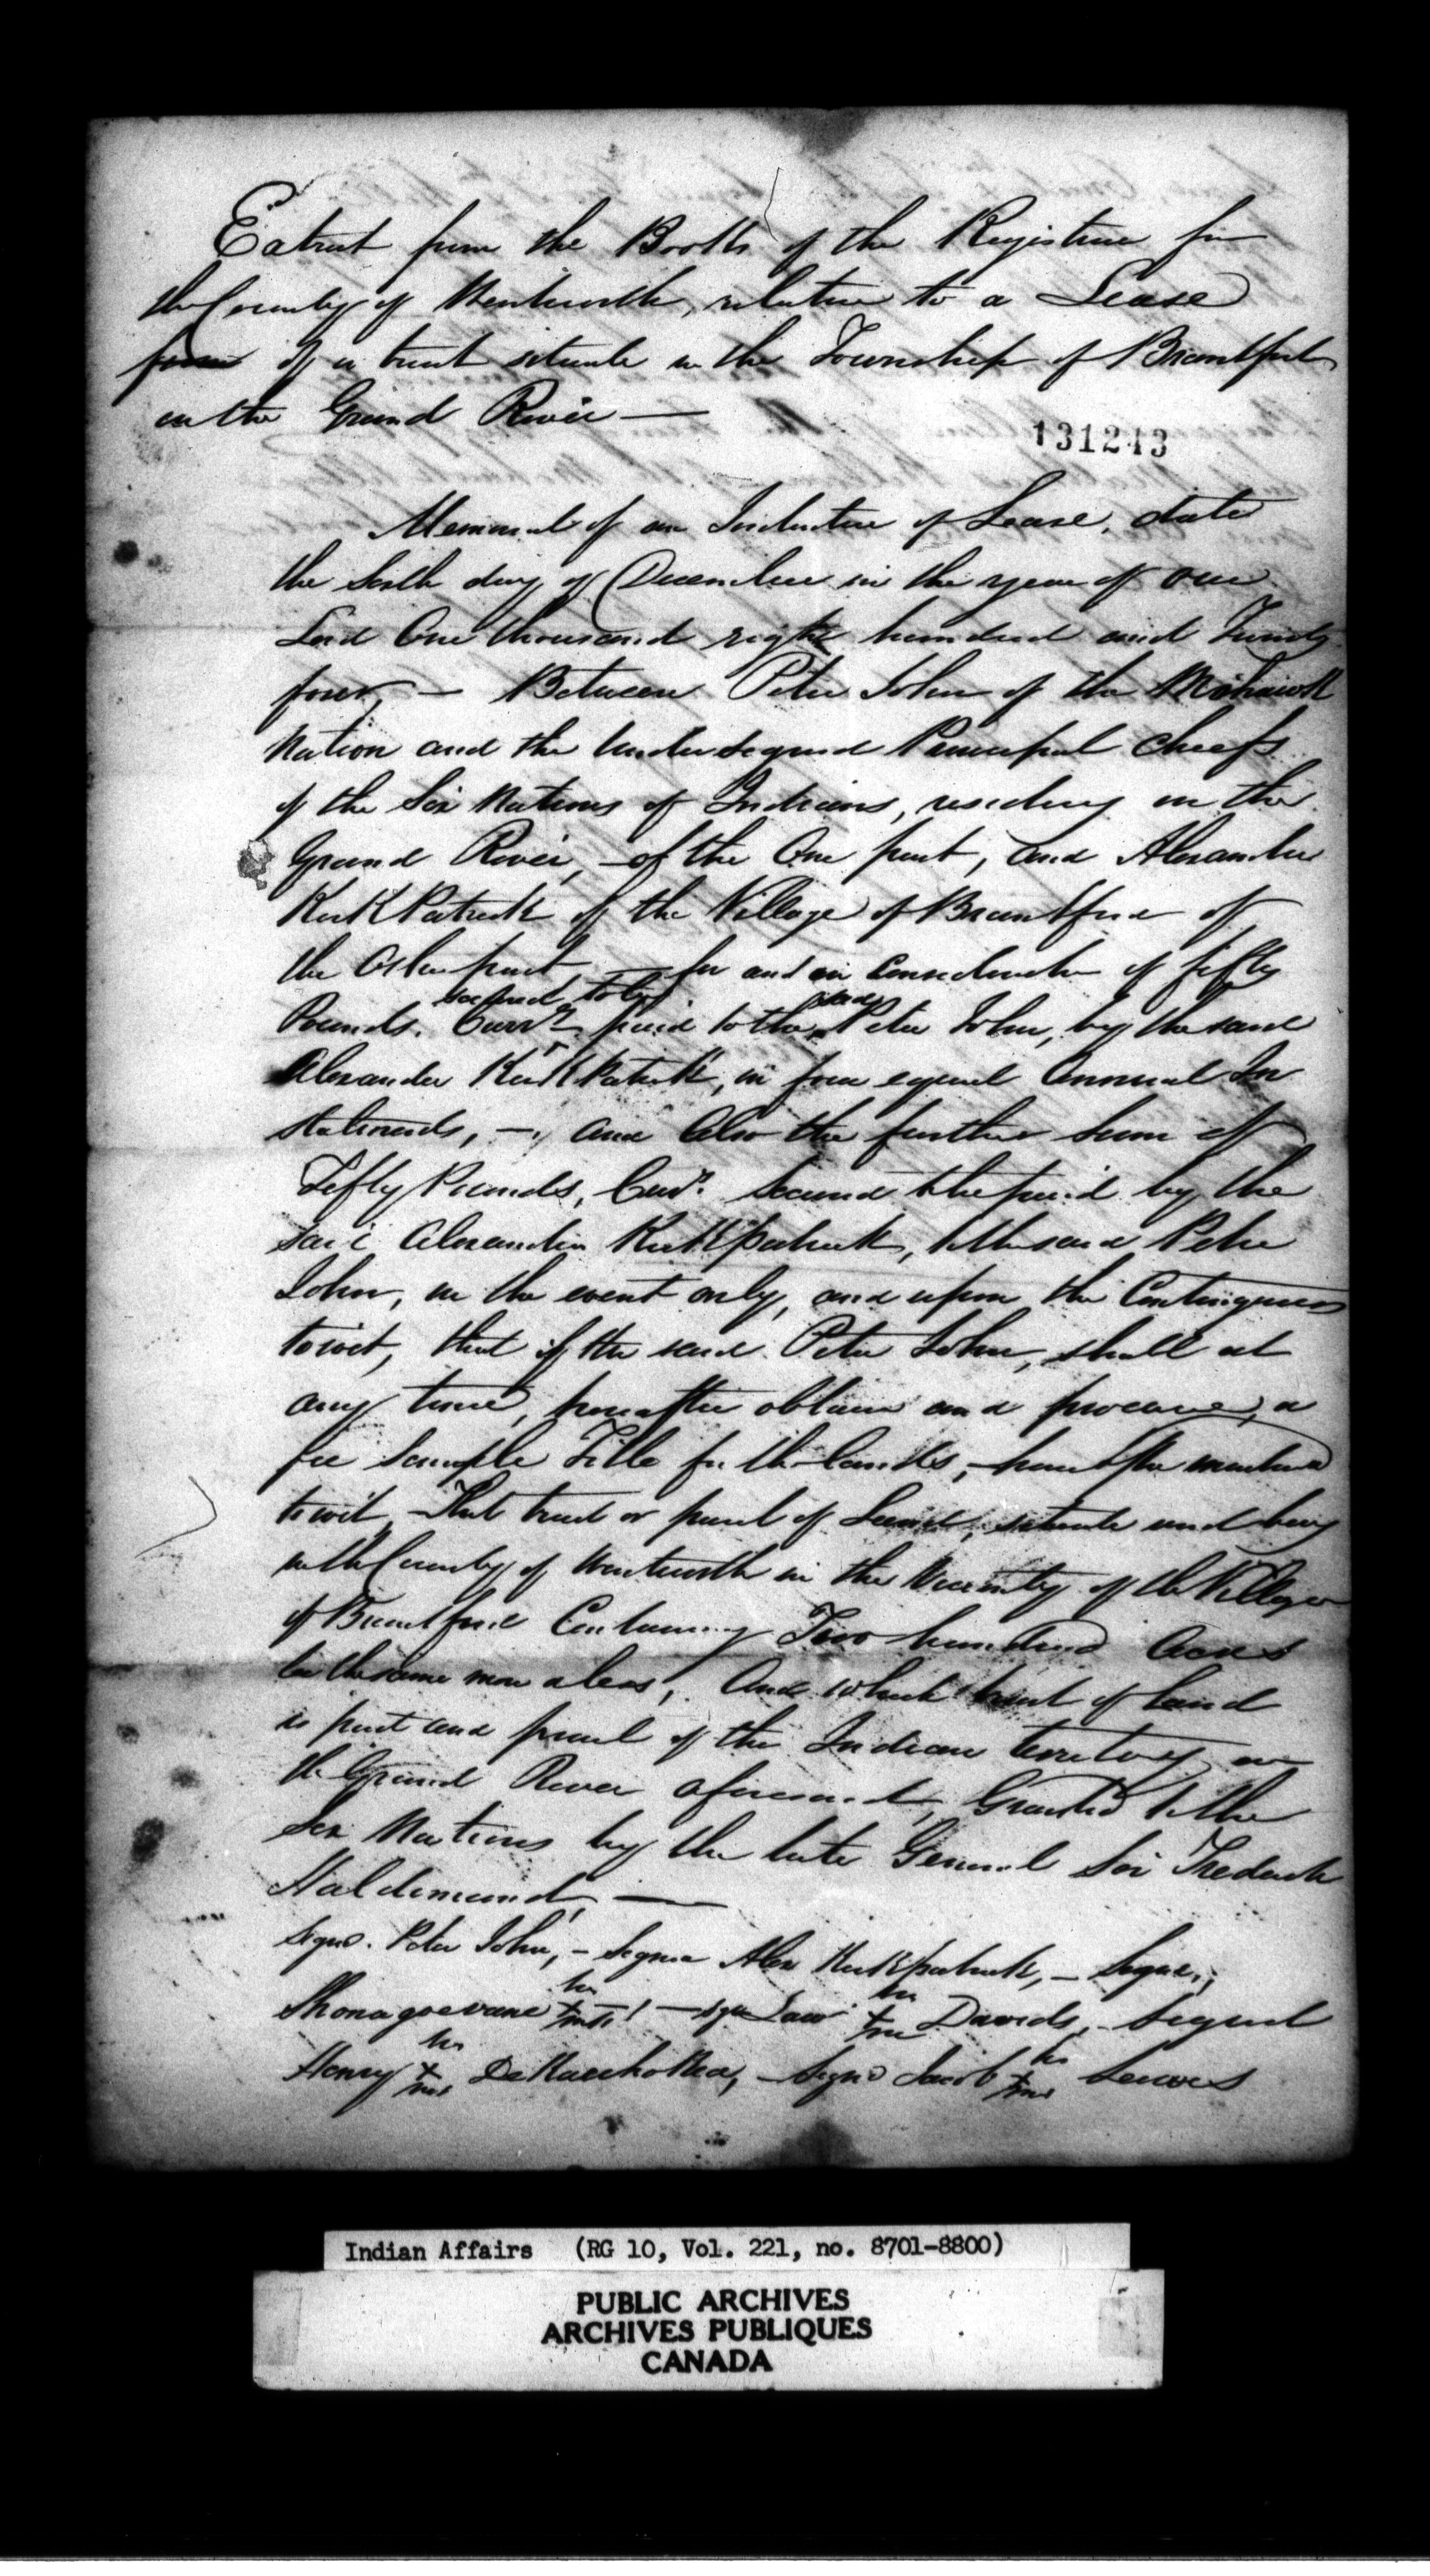 Extract from the Books of the Registrar for
the County of Wentworth, relative to a Lease
from of a tract situate in the Township of Brantford
on the Grand River —
131243
Memorial of an Indenture of Lease, date
the Sixth day of December in the year of our
Lord One thousand eight hundred and Twenty
four, — Between Peter John of the Mohawk
Nation and the Undersigned Principal Chiefs
of the Six Nations of Indians, residing on the
Grand River, — of the One part, and Alexander
KirkPatrick of the Village of Brantford of
the Other part, — for and in Consideration of fifty
secured to be said
Pounds. Curry paid to the Peter John, by the said
Alexander KirkPatrick, in four equal Annual In
stalments, — and Also the further Sum of
Fifty Pounds, Curry. secured to be paid by the
said Alexander Kirkpatrick, to the said Peter
John, in the event only, and upon the Contingencies
towit, that if the said Peter John, shall at
any time, hereafter obtain and procure, a
fee Simple Title for the lands, — hereafter mentioned
to wit, — That tract or parcel of Land, situate and being
in the County of Wentworth in the Vicinity of the Village
of Brantford Containing Two hundred Acres
be the same more or less, And which tract of land
is part and parcel of the Indian territory on
the Grand River aforesaid, Granted to the
Six Nations by the late General Sir Frederick
Haldimand, —
Signd. Peter John, — Signed Alex Kirkpatrick, — Signed,
his his
Shonagoevane + mark — sign Law + mark Davids, — Signed
his his
Henry + mark DeKarihoKea, — Signd Jacob + mark Lewis
Indian Affairs (RG 10, Vol. 221, no. 8701-8800)
PUBLIC ARCHIVES
ARCHIVES PUBLIQUES
CANADA